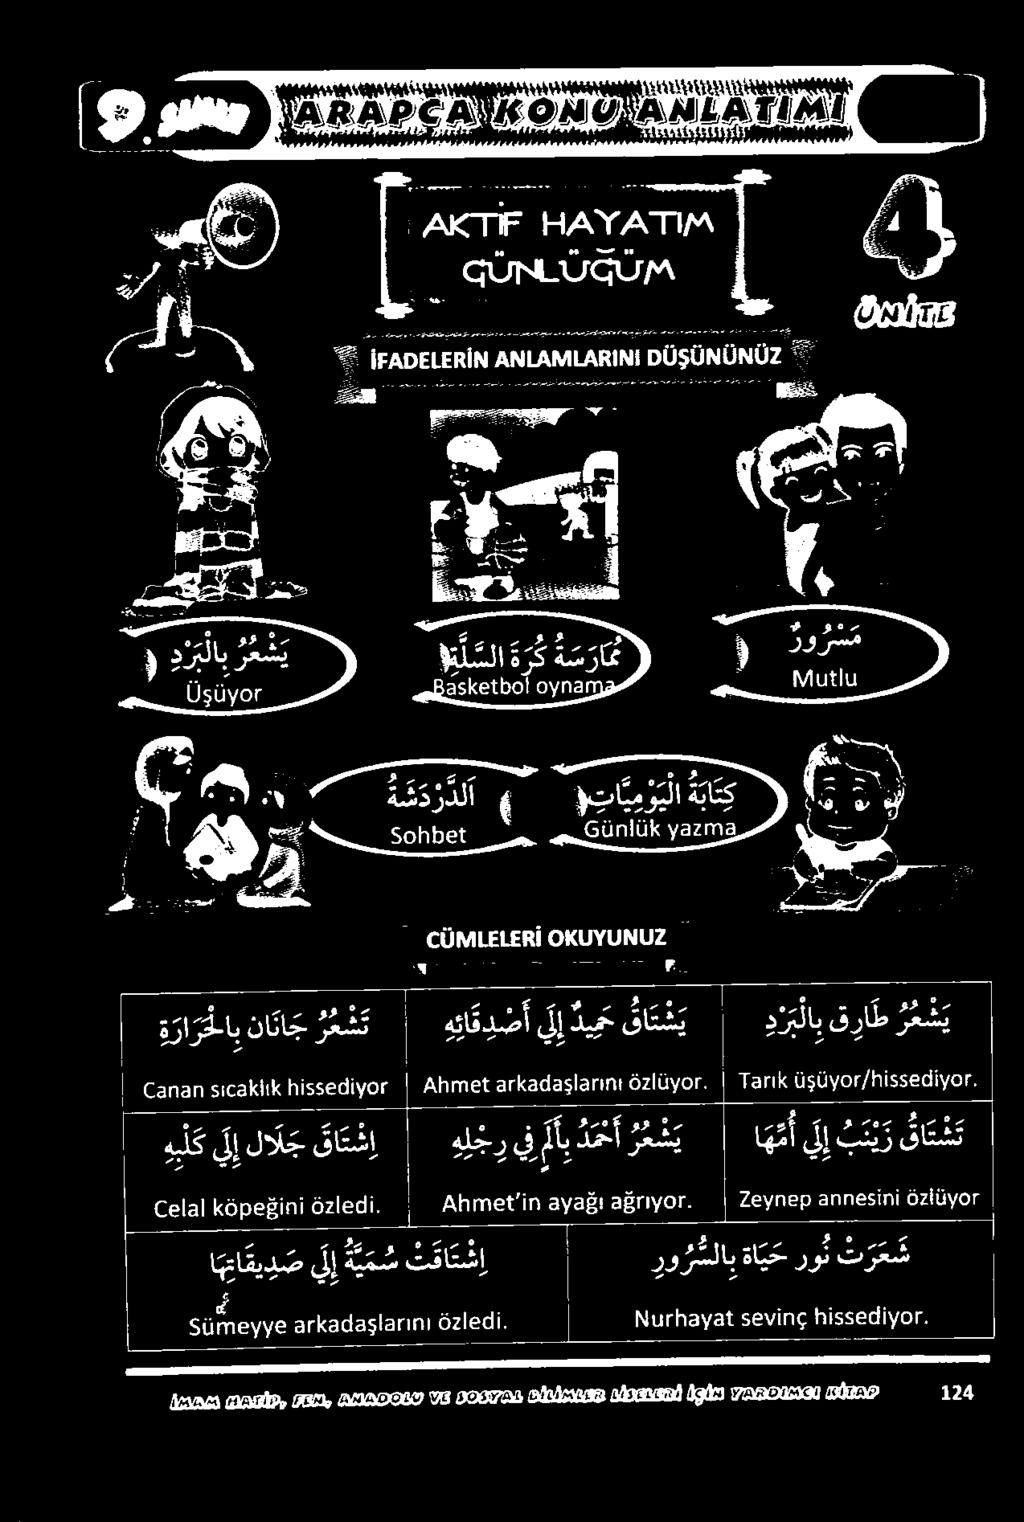 9. SINIF ARAPÇA KONU ANLATIMI
AKTİF HAYATIM
GÜNLÜĞÜM
4
ÜNİTE
İFADELERİN ANLAMLARINI DÜŞÜNÜNÜZ
يَشْعُرُ بِالْبَرْدِ
Üşüyor
مُمَارَسَةُ كُرَةِ السَّلَّةِ
Basketbol oynama
مَسْرُورٌ
Mutlu
اَلدَّرْدَشَةُ
Sohbet
كِتَابَةُ الْيَوْمِيَّاتِ
Günlük yazma
CÜMLELERİ OKUYUNUZ
تَشْعُرُ جَانَان بِالْحَرَارَةِ
Canan sıcaklık hissediyor
يَشْتَاقُ حَمِيدٌ إِلَى أَصْدِقَائِهِ
Ahmet arkadaşlarını özlüyor.
يَشْعُرُ طَارِق بِالْبَرْدِ
Tarık üşüyor/hissediyor.
اِشْتَاقَ جَلَال إِلَي كَلْبِهِ
Celal köpeğini özledi.
يَشْعُرُ أَحْمَدُ بِأَلَمٍ فِي رِجْلِهِ
Ahmet'in ayağı ağrıyor.
تَشْتَاقُ زَيْنَبُ إِلَي أُمِّهَا
Zeynep annesini özlüyor
اِشْتَاقَتْ سُمَيَّةُ إِلَي صَدِيقَاتِهَا
Sümeyye arkadaşlarını özledi.
شَعَرَتْ نُور حَيَاة بِالسُّرُورِ
Nurhayat sevinç hissediyor.
İMAM HATİP, FEN, ANADOLU VE SOSYAL BİLİMLER LİSELERİ İÇİN YARDIMCI KİTAP 124